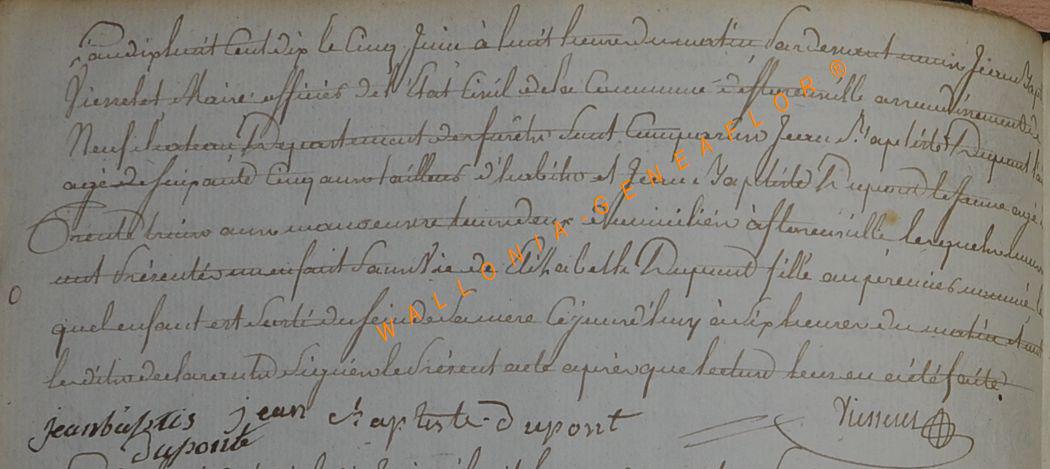 L'an dix huit cent dix le Cinq Juin à huit heures du matin Pardevant nous Jean
Maire officier de l'état Civil de la Commune d' arrondissement de
Neufchateau Département des forêts sont Comparus Jean Baptiste Dupont
agé de soixante Cinq ans tailleur d'habits et Jean Baptiste Dupont le Jeune agé de
trente trois ans manoeuvre tous deux domiciliés à lesquels nous
ont présenté un enfant sans vie de Elisabeth Dupont fille
quel enfant est sorti du sein de sa mère Cejourd'huy à six heures du matin et ont
lesdits declarants signé le présent acte après que lecture leur en a été faite.
jean baptis jean Baptiste Dupont
duponte
WALLONIA-GENEAFLOR®